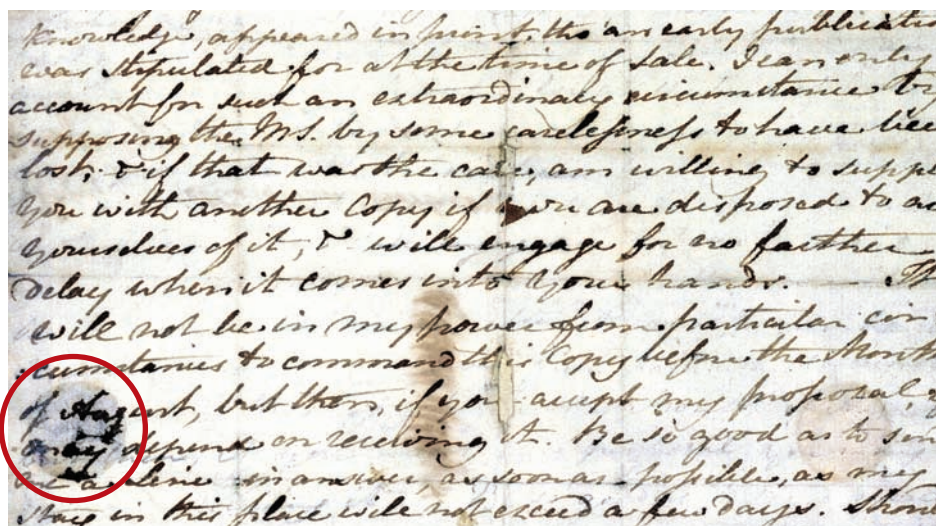 Knowledge, appeared in print, tho' an early publicatio
was stipulated for at the time of Sale. I can only
account for such an extraordinary circumstance by
supposing the MS. by some carelessness to have bee
lost; & if that was the case, am willing to supp
you with another Copy if you are disposed to a
yourselves of it, & will engage for no farther
delay when it comes into your hands. — 
will not be in my power from particular cir
cumstances to command this Copy before the Month
of August, but then, if you accept my proposal,
may depend on receiving it. Be so good as to sen
me a Line in answer, as soon as possible, as my
stay in this place will not exceed a few days. Shou